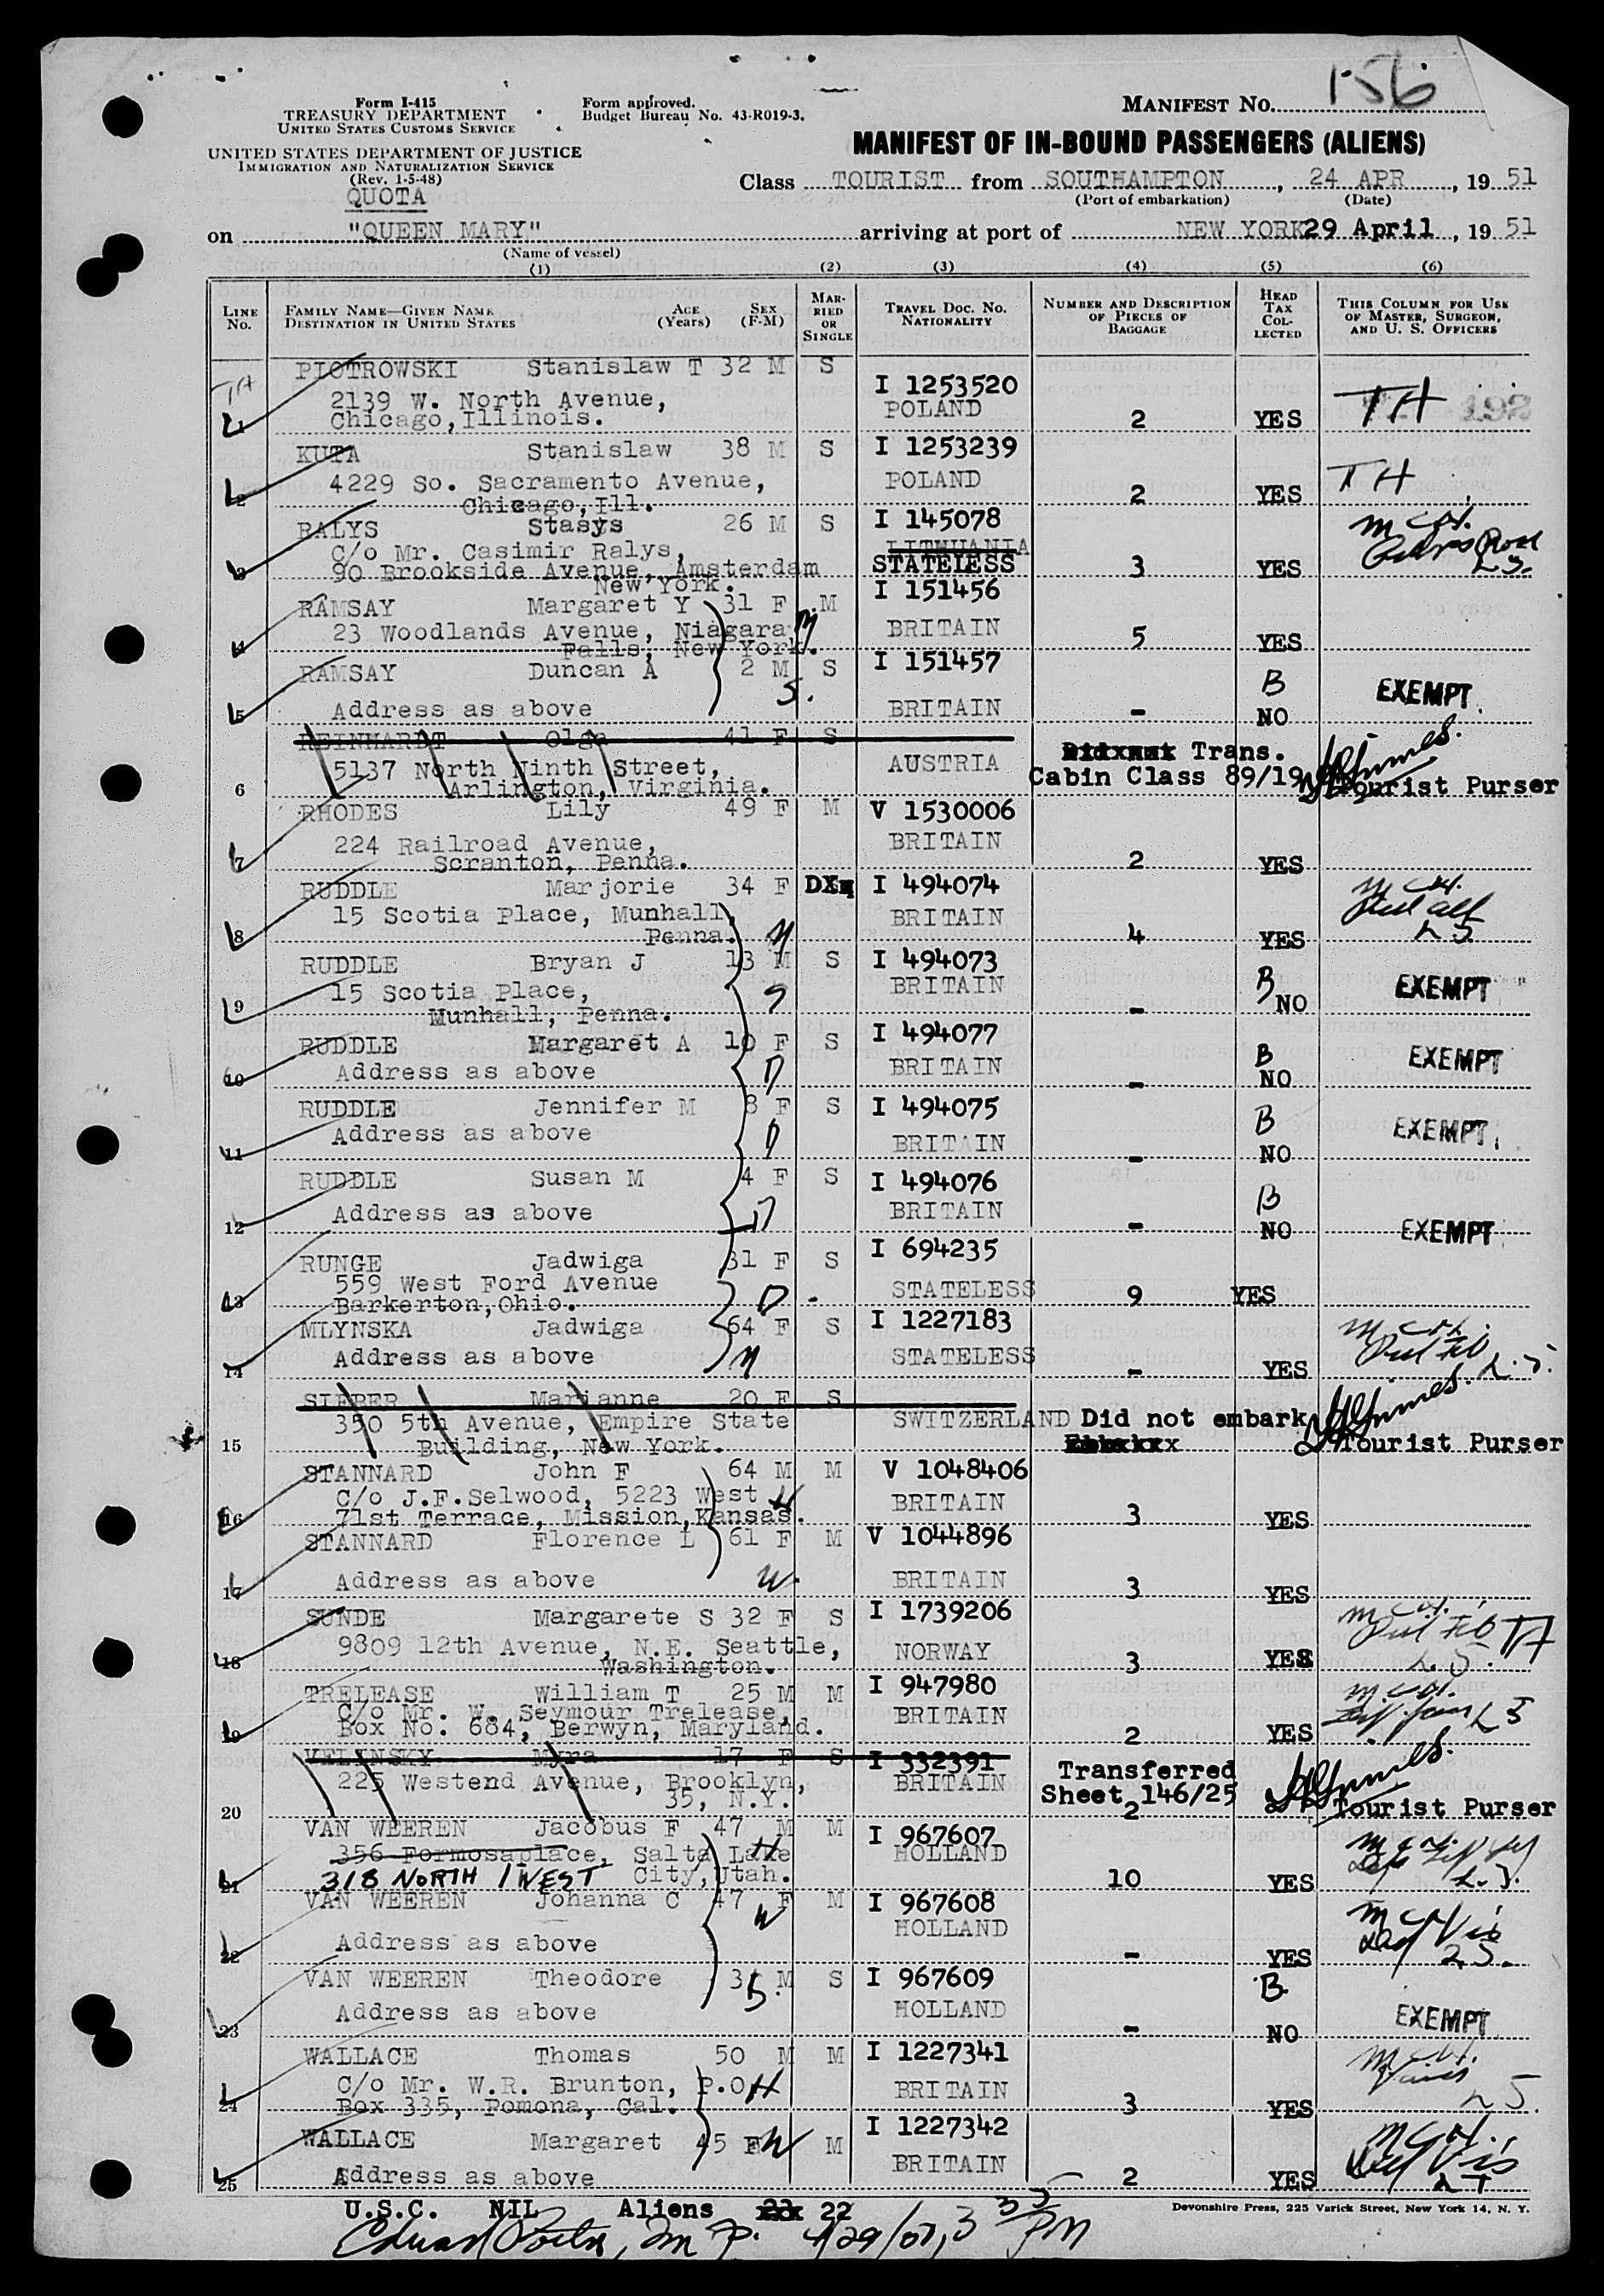 156
Form I-415
TREASURY DEPARTMENT
UNITED STATES CUSTOMS SERVICE
Form approved.
Budget Bureau No. 43-R019-3.
MANIFEST NO. 156
UNITED STATES DEPARTMENT OF JUSTICE
IMMIGRATION AND NATURALIZATION SERVICE
(Rev. 1-5-48)
QUOTA
MANIFEST OF IN-BOUND PASSENGERS (ALIENS)
Class TOURIST from SOUTHAMPTON, 24 APR, 19 51
(Port of embarkation) (Date)
on "QUEEN MARY" arriving at port of NEW YORK 29 April, 19 51
(Name of vessel)
(1) (2) (3) (4) (5) (6)
LINE No. FAMILY NAME—GIVEN NAME DESTINATION IN UNITED STATES AGE (Years) SEX (F-M) MARRIED OR SINGLE TRAVEL DOC. NO. NATIONALITY NUMBER AND DESCRIPTION OF PIECES OF BAGGAGE HEAD TAX COLLECTED THIS COLUMN FOR USE OF MASTER, SURGEON, AND U. S. OFFICERS
PIOTROWSKI Stanislaw T 32 M S I 1253520
TH 2139 W. North Avenue, POLAND TH
1 Chicago,Illinois. 2 YES
KUTA Stanislaw 38 M S I 1253239
4229 So. Sacramento Avenue, POLAND TH
2 Chicago,Ill. 2 YES
RALYS Stasys 26 M S I 145078
C/o Mr. Casimir Ralys, LITHUANIA
3 90 Brookside Avenue, Amsterdam STATELESS 3 YES
New York.
RAMSAY Margaret Y 31 F M I 151456
23 Woodlands Avenue, Niagara BRITAIN 5 YES
4 Falls, New York.
RAMSAY Duncan A 2 M S I 151457 B EXEMPT
5 Address as above BRITAIN - NO
REINHARDT Olga 41 F S
5137 North Ninth Street, AUSTRIA Trans.
6 Arlington, Virginia. Cabin Class 89/19 Tourist Purser
RHODES Lily 49 F M V 1530006
224 Railroad Avenue, BRITAIN
7 Scranton, Penna. 2 YES
RUDDLE Marjorie 34 F I 494074
15 Scotia Place, Munhall, BRITAIN
8 Penna. 4 YES
RUDDLE Bryan J 13 M S I 494073
9 15 Scotia Place, BRITAIN B EXEMPT
Munhall, Penna. - NO
RUDDLE Margaret A 10 F S I 494077
10 Address as above BRITAIN - B NO EXEMPT
RUDDLE Jennifer M 8 F S I 494075
11 Address as above BRITAIN - B NO EXEMPT
RUDDLE Susan M 4 F S I 494076
12 Address as above BRITAIN - B NO EXEMPT
RUNGE Jadwiga 31 F S I 694235
559 West Ford Avenue STATELESS 9 YES
13 Barkerton,Ohio.
MLYNSKA Jadwiga 64 F S I 1227183
14 Address as above STATELESS - YES
SIEBER Marianne 20 F S
350 5th Avenue, Empire State SWITZERLAND Did not embark
15 Building, New York. Tourist Purser
STANNARD John F 64 M M V 1048406
C/o J.F.Selwood, 5223 West BRITAIN
16 71st Terrace, Mission,Kansas. 3 YES
STANNARD Florence L 61 F M V 1044896
17 Address as above BRITAIN 3 YES
SUNDE Margarete S 32 F S I 1739206
9809 12th Avenue, N.E. Seattle, NORWAY TA
18 Washington. 3 YES
TRELEASE William T 25 M M I 947980
C/o Mr. W. Seymour Trelease, BRITAIN
19 Box No. 684, Berwyn, Maryland. 2 YES
VELINSKY Myra 17 F S I 332391
225 Westend Avenue, Brooklyn, BRITAIN Transferred
20 35, N.Y. Sheet 146/25 2 Tourist Purser
VAN WEEREN Jacobus F 47 M M I 967607
356 Formosaplace, Salta Lake HOLLAND
21 318 NORTH 1 WEST City,Utah. 10 YES
VAN WEEREN Johanna C 47 F M I 967608
HOLLAND
22 Address as above - YES
VAN WEEREN Theodore M S I 967609 B.
Address as above HOLLAND EXEMPT
23 - NO
WALLACE Thomas 50 M M I 1227341
C/o Mr. W.R. Brunton, P.O. BRITAIN
24 Box 335, Pomona, Cal. 3 YES
WALLACE Margaret 45 F M I 1227342
25 Address as above BRITAIN 2 YES
U.S.C. NIL Aliens 22
Devonshire Press, 225 Varick Street, New York 14, N. Y.